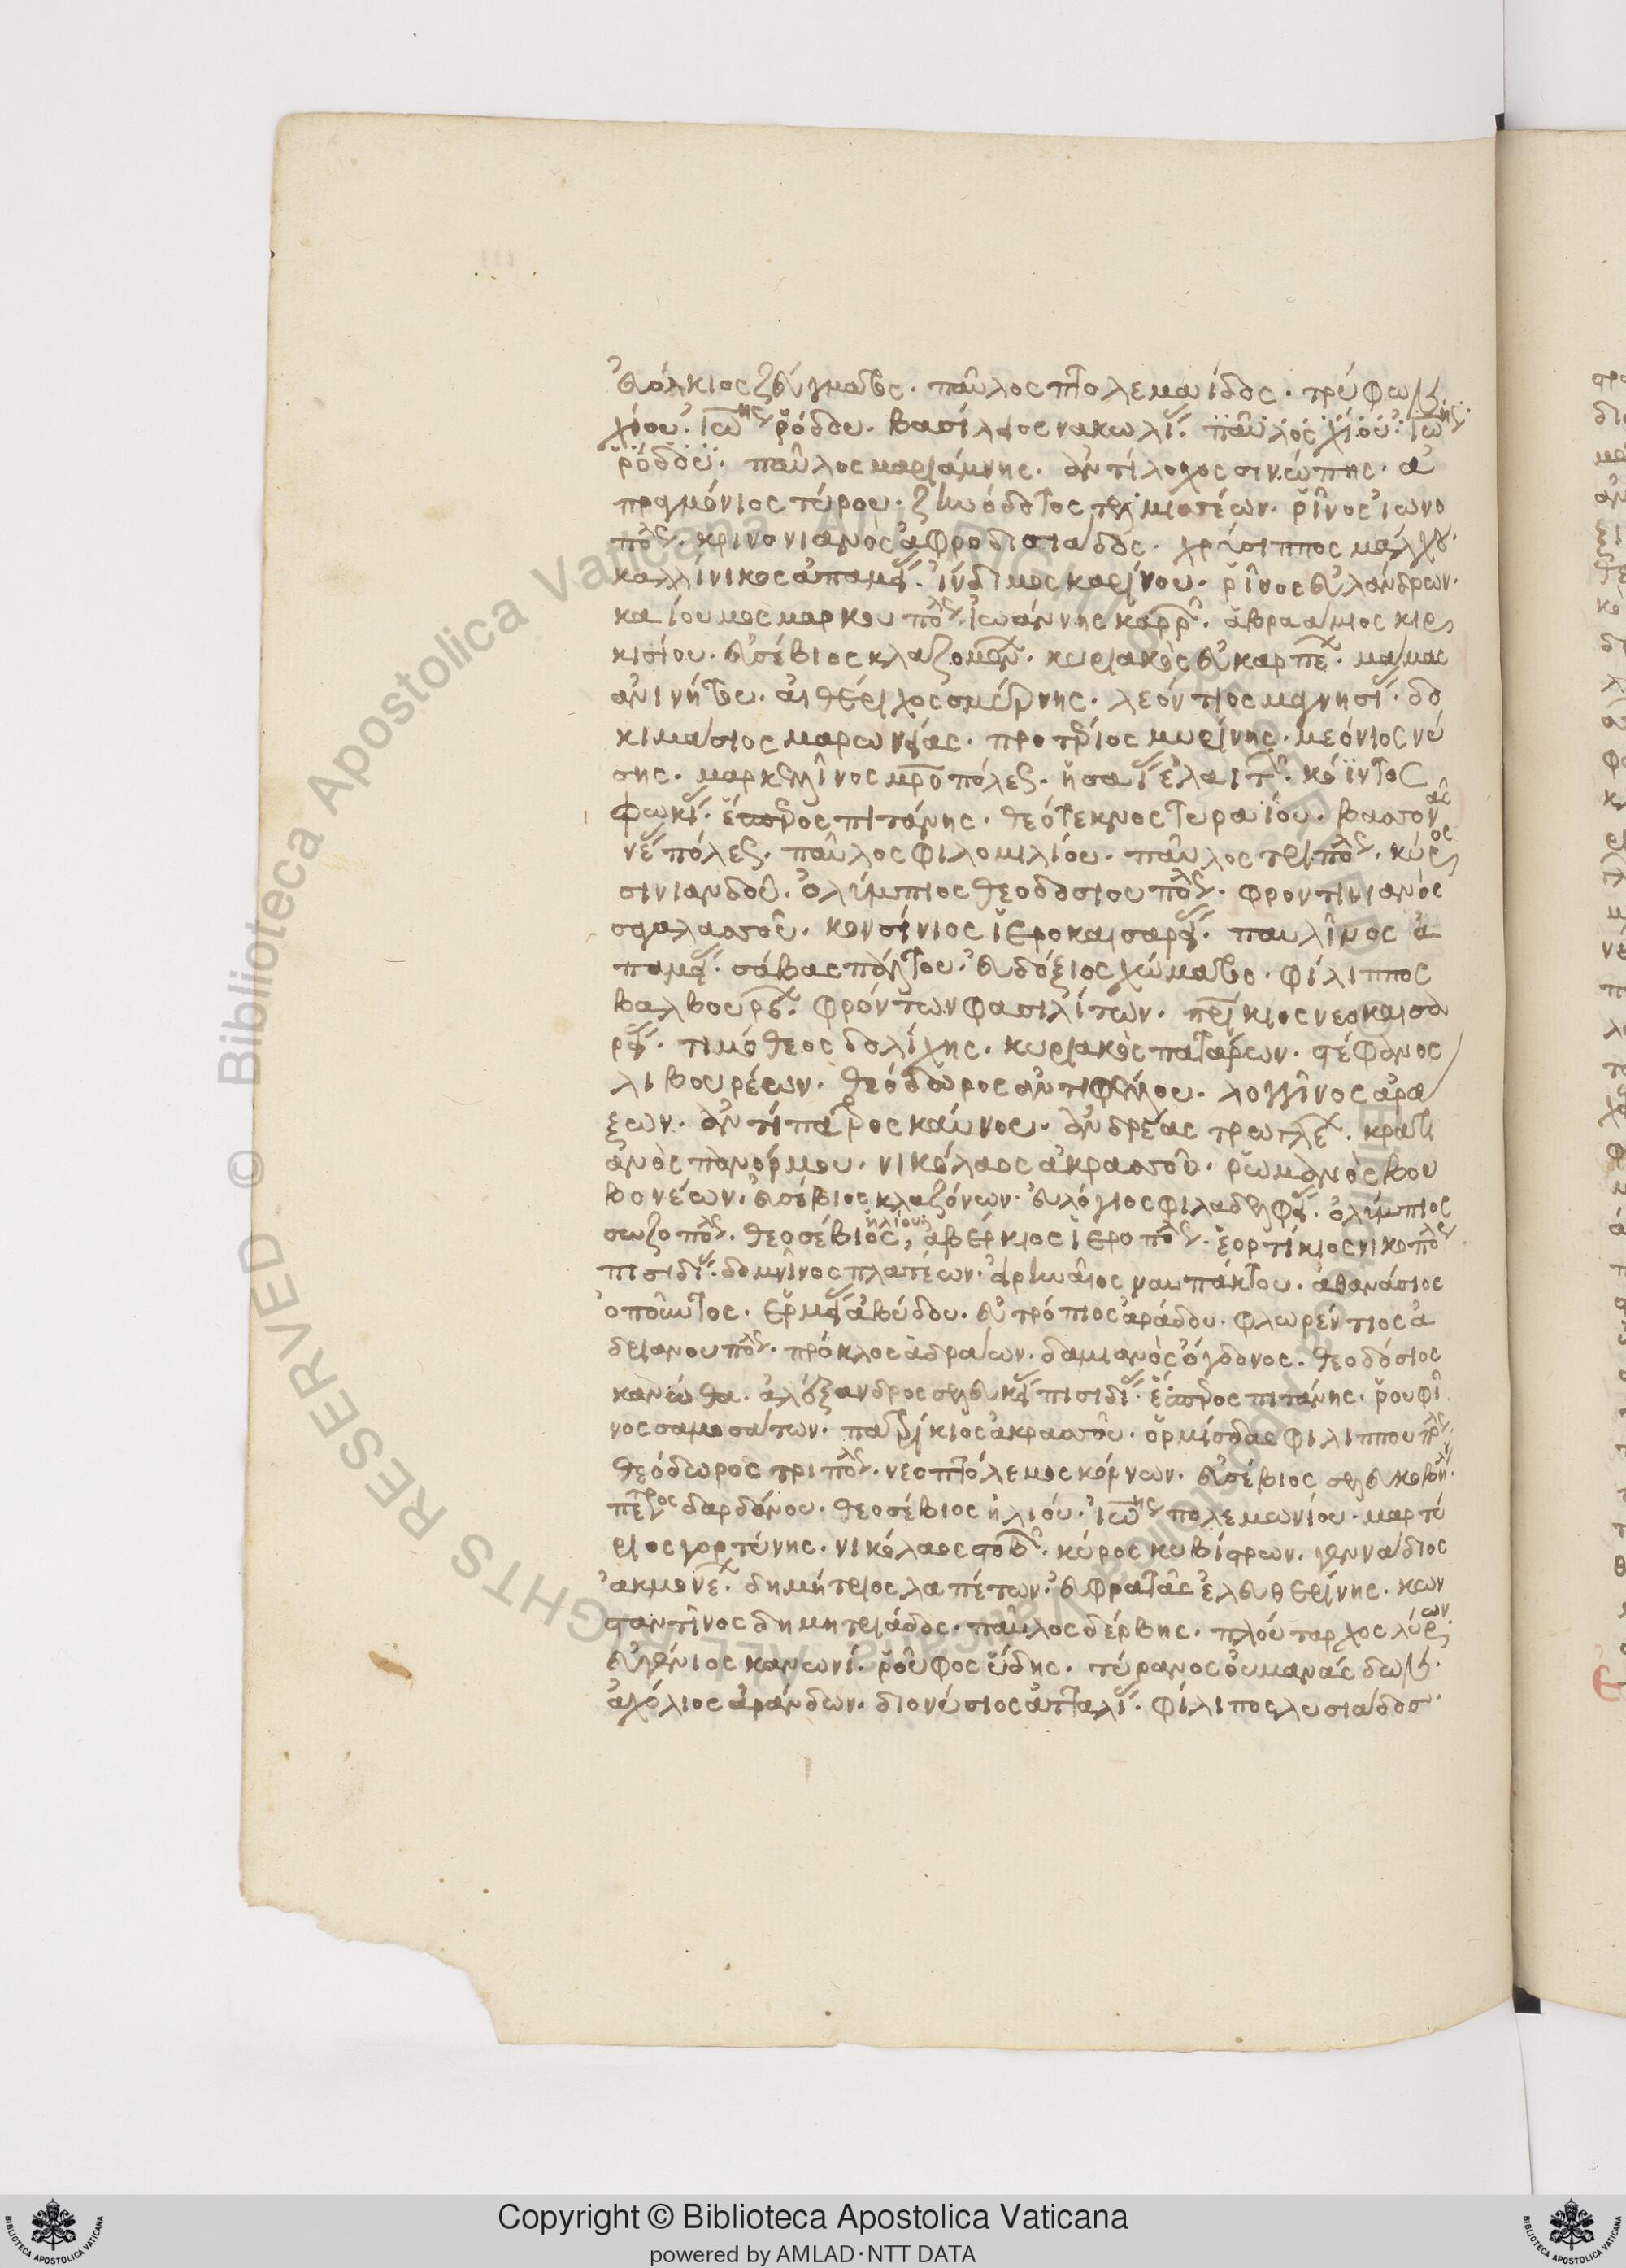 εὐόλκιος ζεύγματος. παῦλος πτολεμαΐδος. τρύφων
χίου. ἰω^ης ῥόδου. βασίλειος νακωλεί. παῦλος χίου. ἰω^ης
ῥόδου. παῦλος μαριάμνης. ἀντίλοχος σινώπης. ἀ
πραγμόνιος τύρου. ζηνόδοτος τελμισέων. ῥῖνος ἰωνο
πόλς. κρινονιανὸς ἀφροδισιάδος. χρύσιππος μάλχου.
καλλίνικος ἀπαμεί. ἰνδιμος καρίνου. ῥῖνος εὐλάνδρων.
καίουμος μαρκουπόλς. ἰωάννης κάρρ. ἀβραάμιος κιρ
κισίου. εὐσέβιος κλαζομεν. κυριακὸς εὐκαρπε. μάμας
ἀνινήτου. αἰθέριχος σμύρνης. λεόντιος μαγνησί. δο
κιμάσιος μαρωνείας. προτέριος μυρίνης. μεόνιος νύ
σης. μαρκελλῖνος μροπόλεως. ἡσαΐ ἐλαιτ. κόϊντος
φωκεί. ἕσπρος πιτάνης. θεότεκνος τυραΐου. βασσον^ας
νεπόλεως. παῦλος φιλομιλίου. παῦλος τριπόλς. κύρ^ος
σινιανδοῦ. ὀλύμπιος θεοδοσιουπόλς. φροντινιανὸς
σαγαλασσοῦ. κονσίνιος ἱεροκαισαρεί. παυλῖνος ἀ
παμεί. σάβας πάλτου. εὐδόξιος χώματος. φίλιππος
βαλβουρε. φρόντων φασιλίτων. πρίκιος νεοκαισα
ρεί. τιμόθεος δολίχης. κυριακὸς πατάρων. στέφανος
λιβουρέων. θεόδωρος ἀντιφέλλου. λογγῖνος ἀρα
ξων. ἀντίπατρος καύνου. ἀνδρέας τρωπλε. κρατι
ανὸς πανόρμου. νικόλαος ἀκρασσοῦ. ῥωμανὸς βου
βονέων. εὐσέβιος κλαζόνων. εὐλόγιος φιλαδελφεί. ὀλύμπιος
σωζοπόλς. θεοσέβιος ἡλίου, ἀβέρκιος ἱεροπόλς. ἑορτίκιος νικοπόλς
πισιδί. δομνῖνος πλατέων. εἰρηναῖος ναυπάκτου. ἀθανάσιος
ὀποῦντος. ἑρμεί ἀβύδου. εὐτρόπιος ἀράδου. φλωρέντιος ἀ
δριανουπόλς. πρόκλος ἀδράων. δαμιανὸς ὀγδονος. θεοδόσιος
κανώθα. ἀλέξανδρος σελευκεί πισιδί. ἕσπρος πιτάνης. ῥουφῖ
νος σαμοσάτων. πατρίκιος ἀκρασσοῦ. ὁρμίσδας φιλιππουπλς.
θεόδωρος τριπόλς. νεοπτόλεμος κόρνων. εὐσέβιος σελευκοβήλ.
πέτρος δαρδάνου. θεοσέβιος ἡλιού. ἰω^ης πολεμωνίου. μαρτύ
ριος γορτύνης. νικόλαος στοβ. κύρος κυβίστρων. γεννάδιος
ἀκμονε. δημήτριος λαπέτων. εὐφρατᾶς ἐλευθερίνης. κων
σταντῖνος δημητριάδος. παῦλος δέρβης. πλούταρχος λύρ^ων
εὐγένιος κανωνί. ῥοῦφος εὔδης. τύρανος οὐμανάς δων.
ἀχόλιος ἀράνδων. διονύσιος ἀτταλί. φίλιπος λυσιάδος.